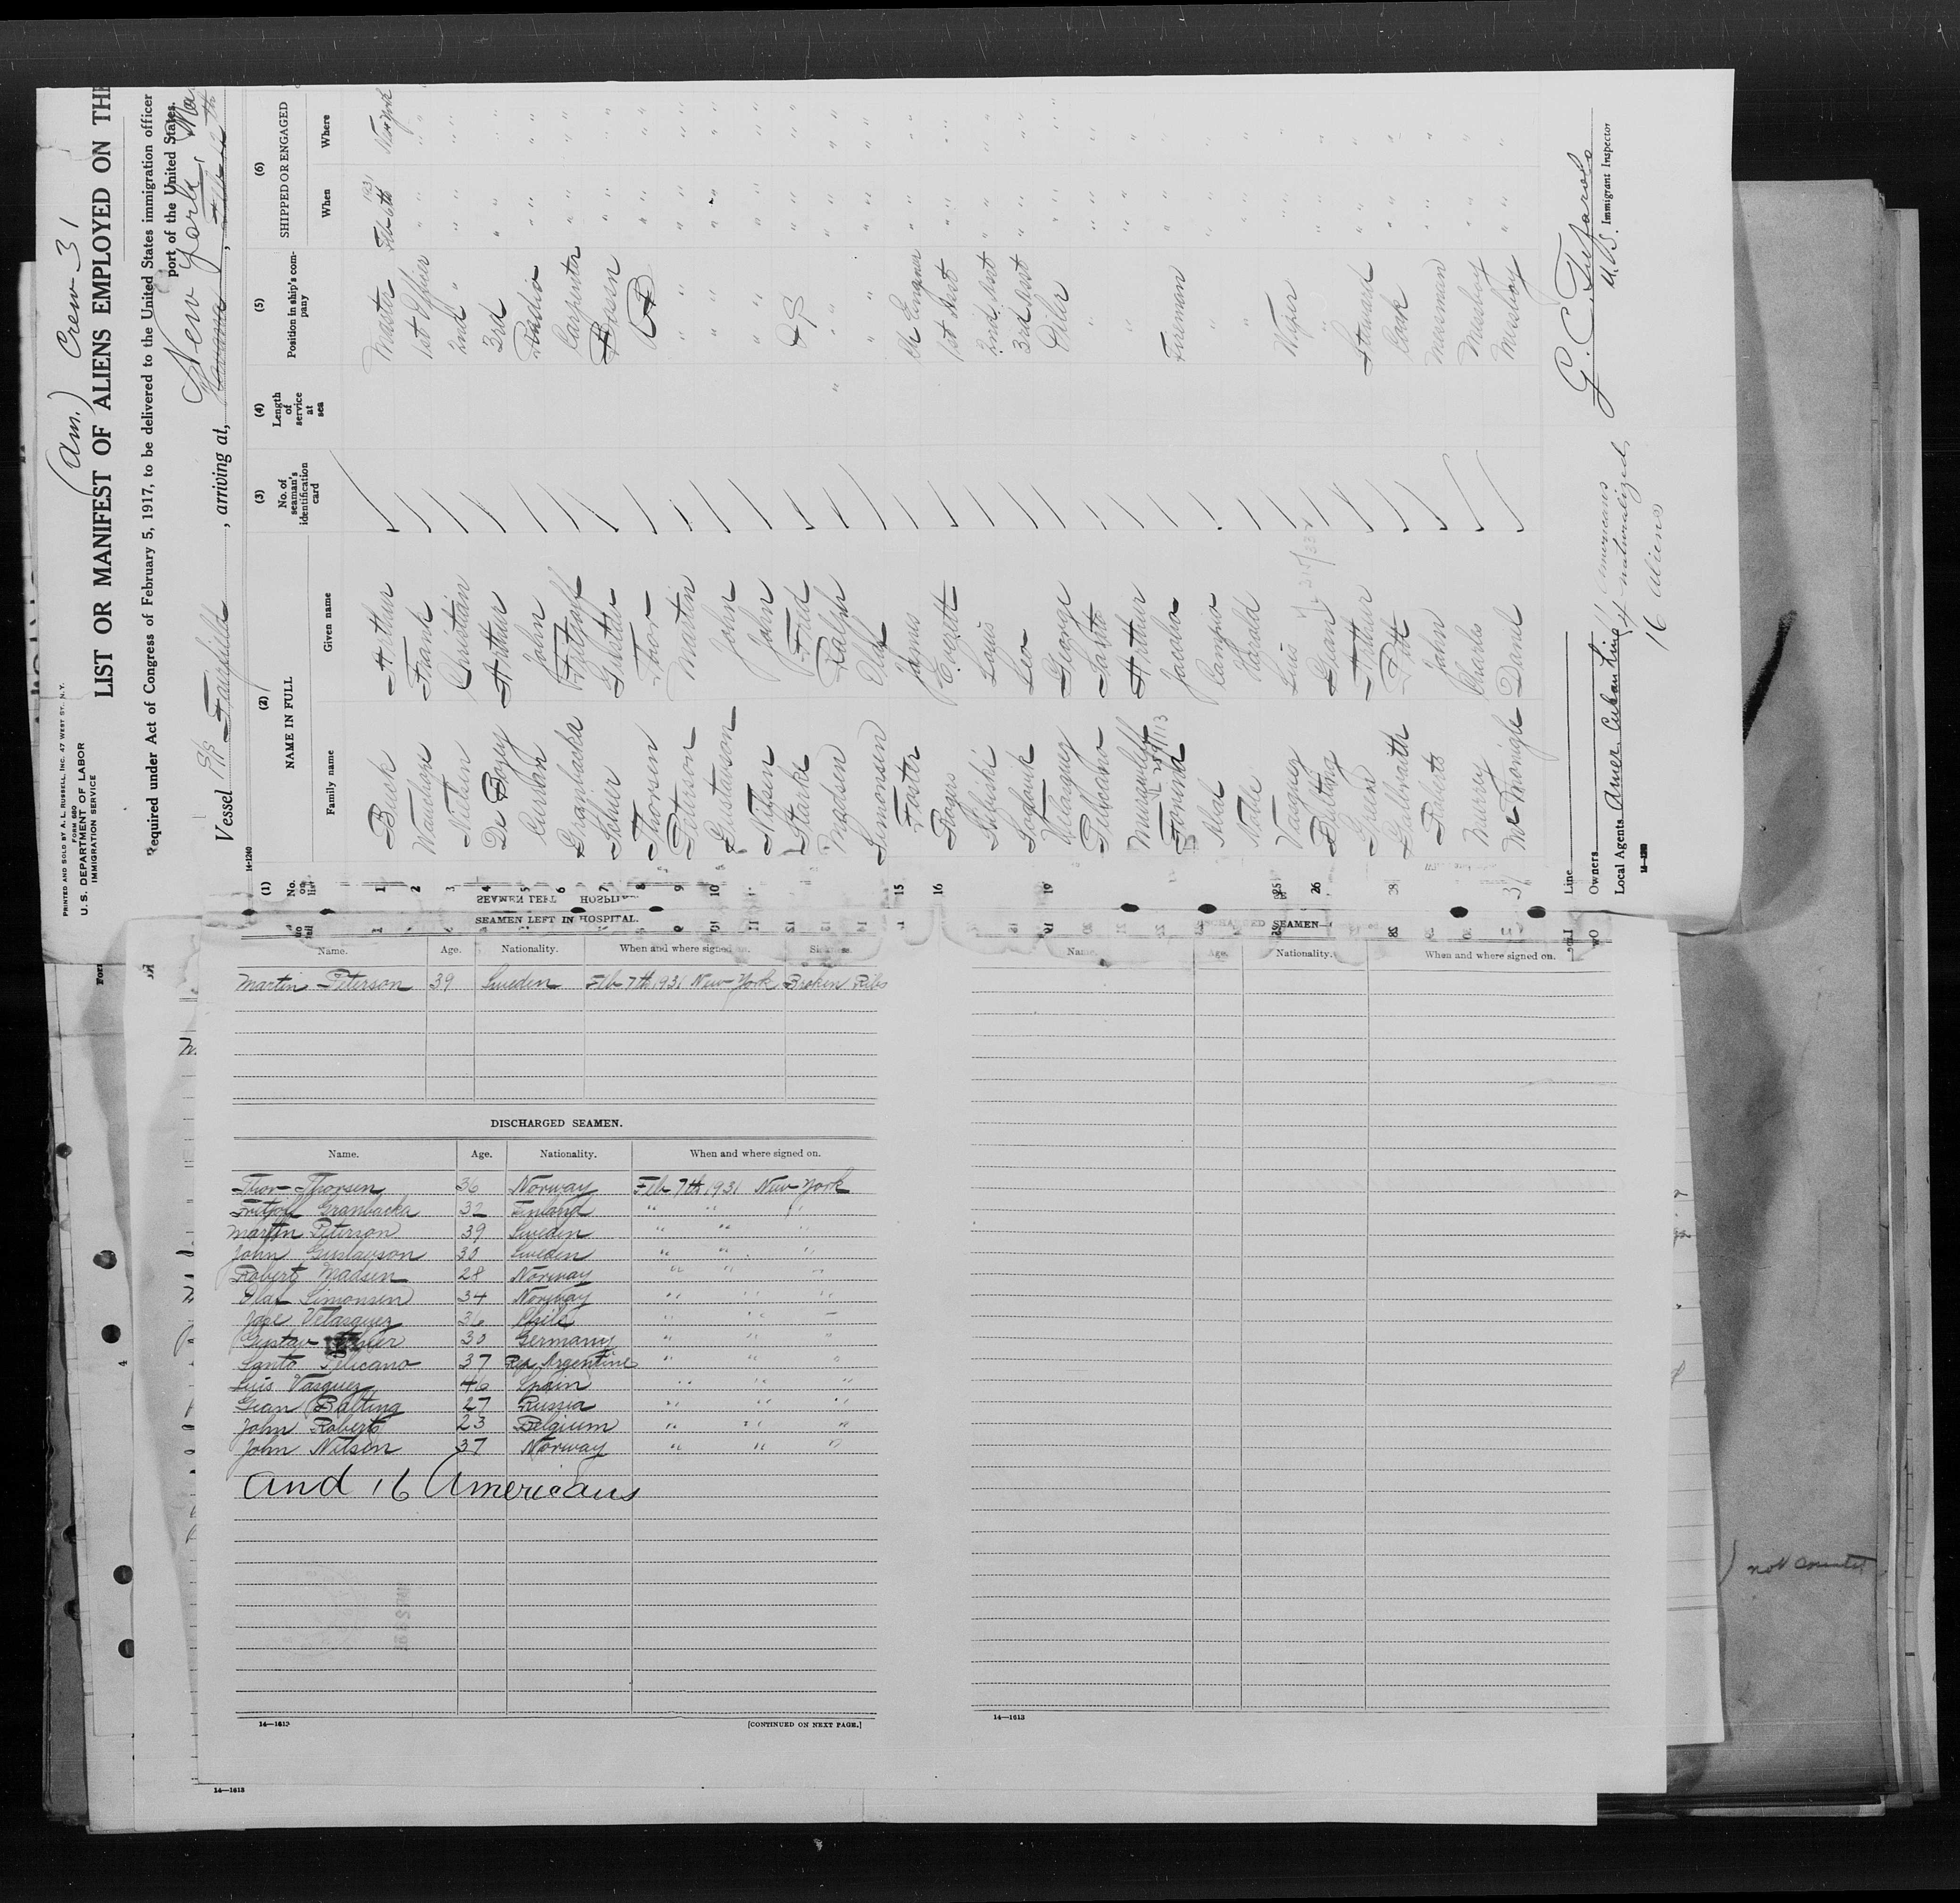 (Am.) Crew-31
PRINTED AND SOLD BY A. L. RUSSELL, INC. 47 WEST ST. N.Y.
FORM 680
U. S. DEPARTMENT OF LABOR
IMMIGRATION SERVICE
LIST OR MANIFEST OF ALIENS EMPLOYED ON THE
Required under Act of Congress of February 5, 1917, to be delivered to the United States immigration officer
port of the United States.
New York, Ma
Vessel SS Fairfield, arriving at, Havana
14-1240
(1) (2) (3) (4) (5) (6)
No. on list NAME IN FULL No. of seaman's identification card Length of service at sea Position in ship's company SHIPPED OR ENGAGED
Family name Given name When Where
1 Buck Arthur Master Feb 7th 1931 New York
2 Wauchop Frank 1st Officer " "
3 Nielsen Christian 2nd " " "
4 De Bozy Arthur 3rd " "
5 Curran John Radio " "
6 Granbacka Fritjolf Carpenter " "
7 Gustav Bosn " "
8 Thorsen Thor AB " "
9 Peterson Martin " " "
10 Gustawson John " " "
Nilsen John " " "
Starke Fred OS " "
Madsen Ralph " " "
Simonssen Olaf " " "
15 Foster James Ch Enginer " "
16 Rogus Everett 1st Asst " "
Louis 2nd Asst " "
Leo 3rd Asst " "
19 Velasquez George Oiler " "
Pelicano Santo " " "
Arthur " " "
Jacobo Fireman " "
Abal Campio " " "
Noble Harald " " "
25 Vasquez Luis Wiper " "
26 Balting Gian " " "
Greene Arthur Steward " "
28 Galbraith Cook " "
Roberts John Messman " "
Murrey Charles Messboy " "
31 McMonigle Daniel Messboy " "
Line
Owners
Local Agents Amer Cuban Line
14-1240
11 Americans
4 naturalized
16 Aliens
G. C. Tufarolo
U.S. Immigrant Inspector
SEAMEN LEFT IN HOSPITAL.
Name. Age. Nationality. When and where signed on. Sickness.
Martin Peterson 39 Sweden Feb 7th 1931 New York Broken Ribs
DISCHARGED SEAMEN.
Name. Age. Nationality. When and where signed on.
Thor Thorsen 36 Norway Feb 7th 1931 New York
Fritjolf Granbacka 32 Finland " " "
Martin Peterson 39 Sweden " " "
John Gustavson 30 Sweden " " "
Robert Madsen 28 Norway " " "
Olaf Simonsen 34 Norway " " "
Jose Velasquez 36 Chile " " "
Gustav 30 Germany " " "
Santo Pelicano 37 Rep Argentine " " "
Luis Vasquez 46 Spain " " "
Gian Balting 27 Russia " " "
John Roberts 23 Belgium " " "
John Nilsen 37 Norway " " "
and 16 Americans
14—1613
[CONTINUED ON NEXT PAGE.]
14—1613
DISCHARGED SEAMEN—
Name. Age. Nationality. When and where signed on.
14—1613
not counted